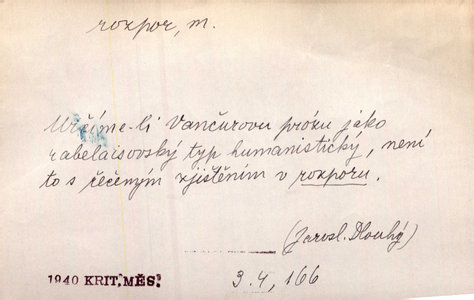 rozpor, m.
Určíme-li Vančurovu prózu jako
rabelaisovský typ humanistický, není
to s řečeným zjištěním v rozporu.
(Jarosl. Dlouhý)
1940 KRIT. MĚS.
3.4, 166